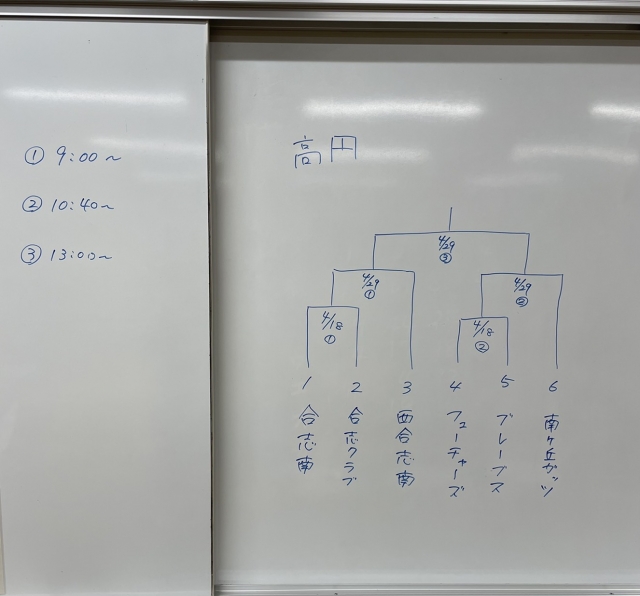 ① 9:00～
② 10:40～
③ 13:00～
高円
4/29
③
4/29
①
4/29
②
4/18
①
4/18
②
1 2 3 4 5 6
合志南
合志クラブ
西合志南
フューチャーズ
ブレーブス
南ヶ丘ガッツ